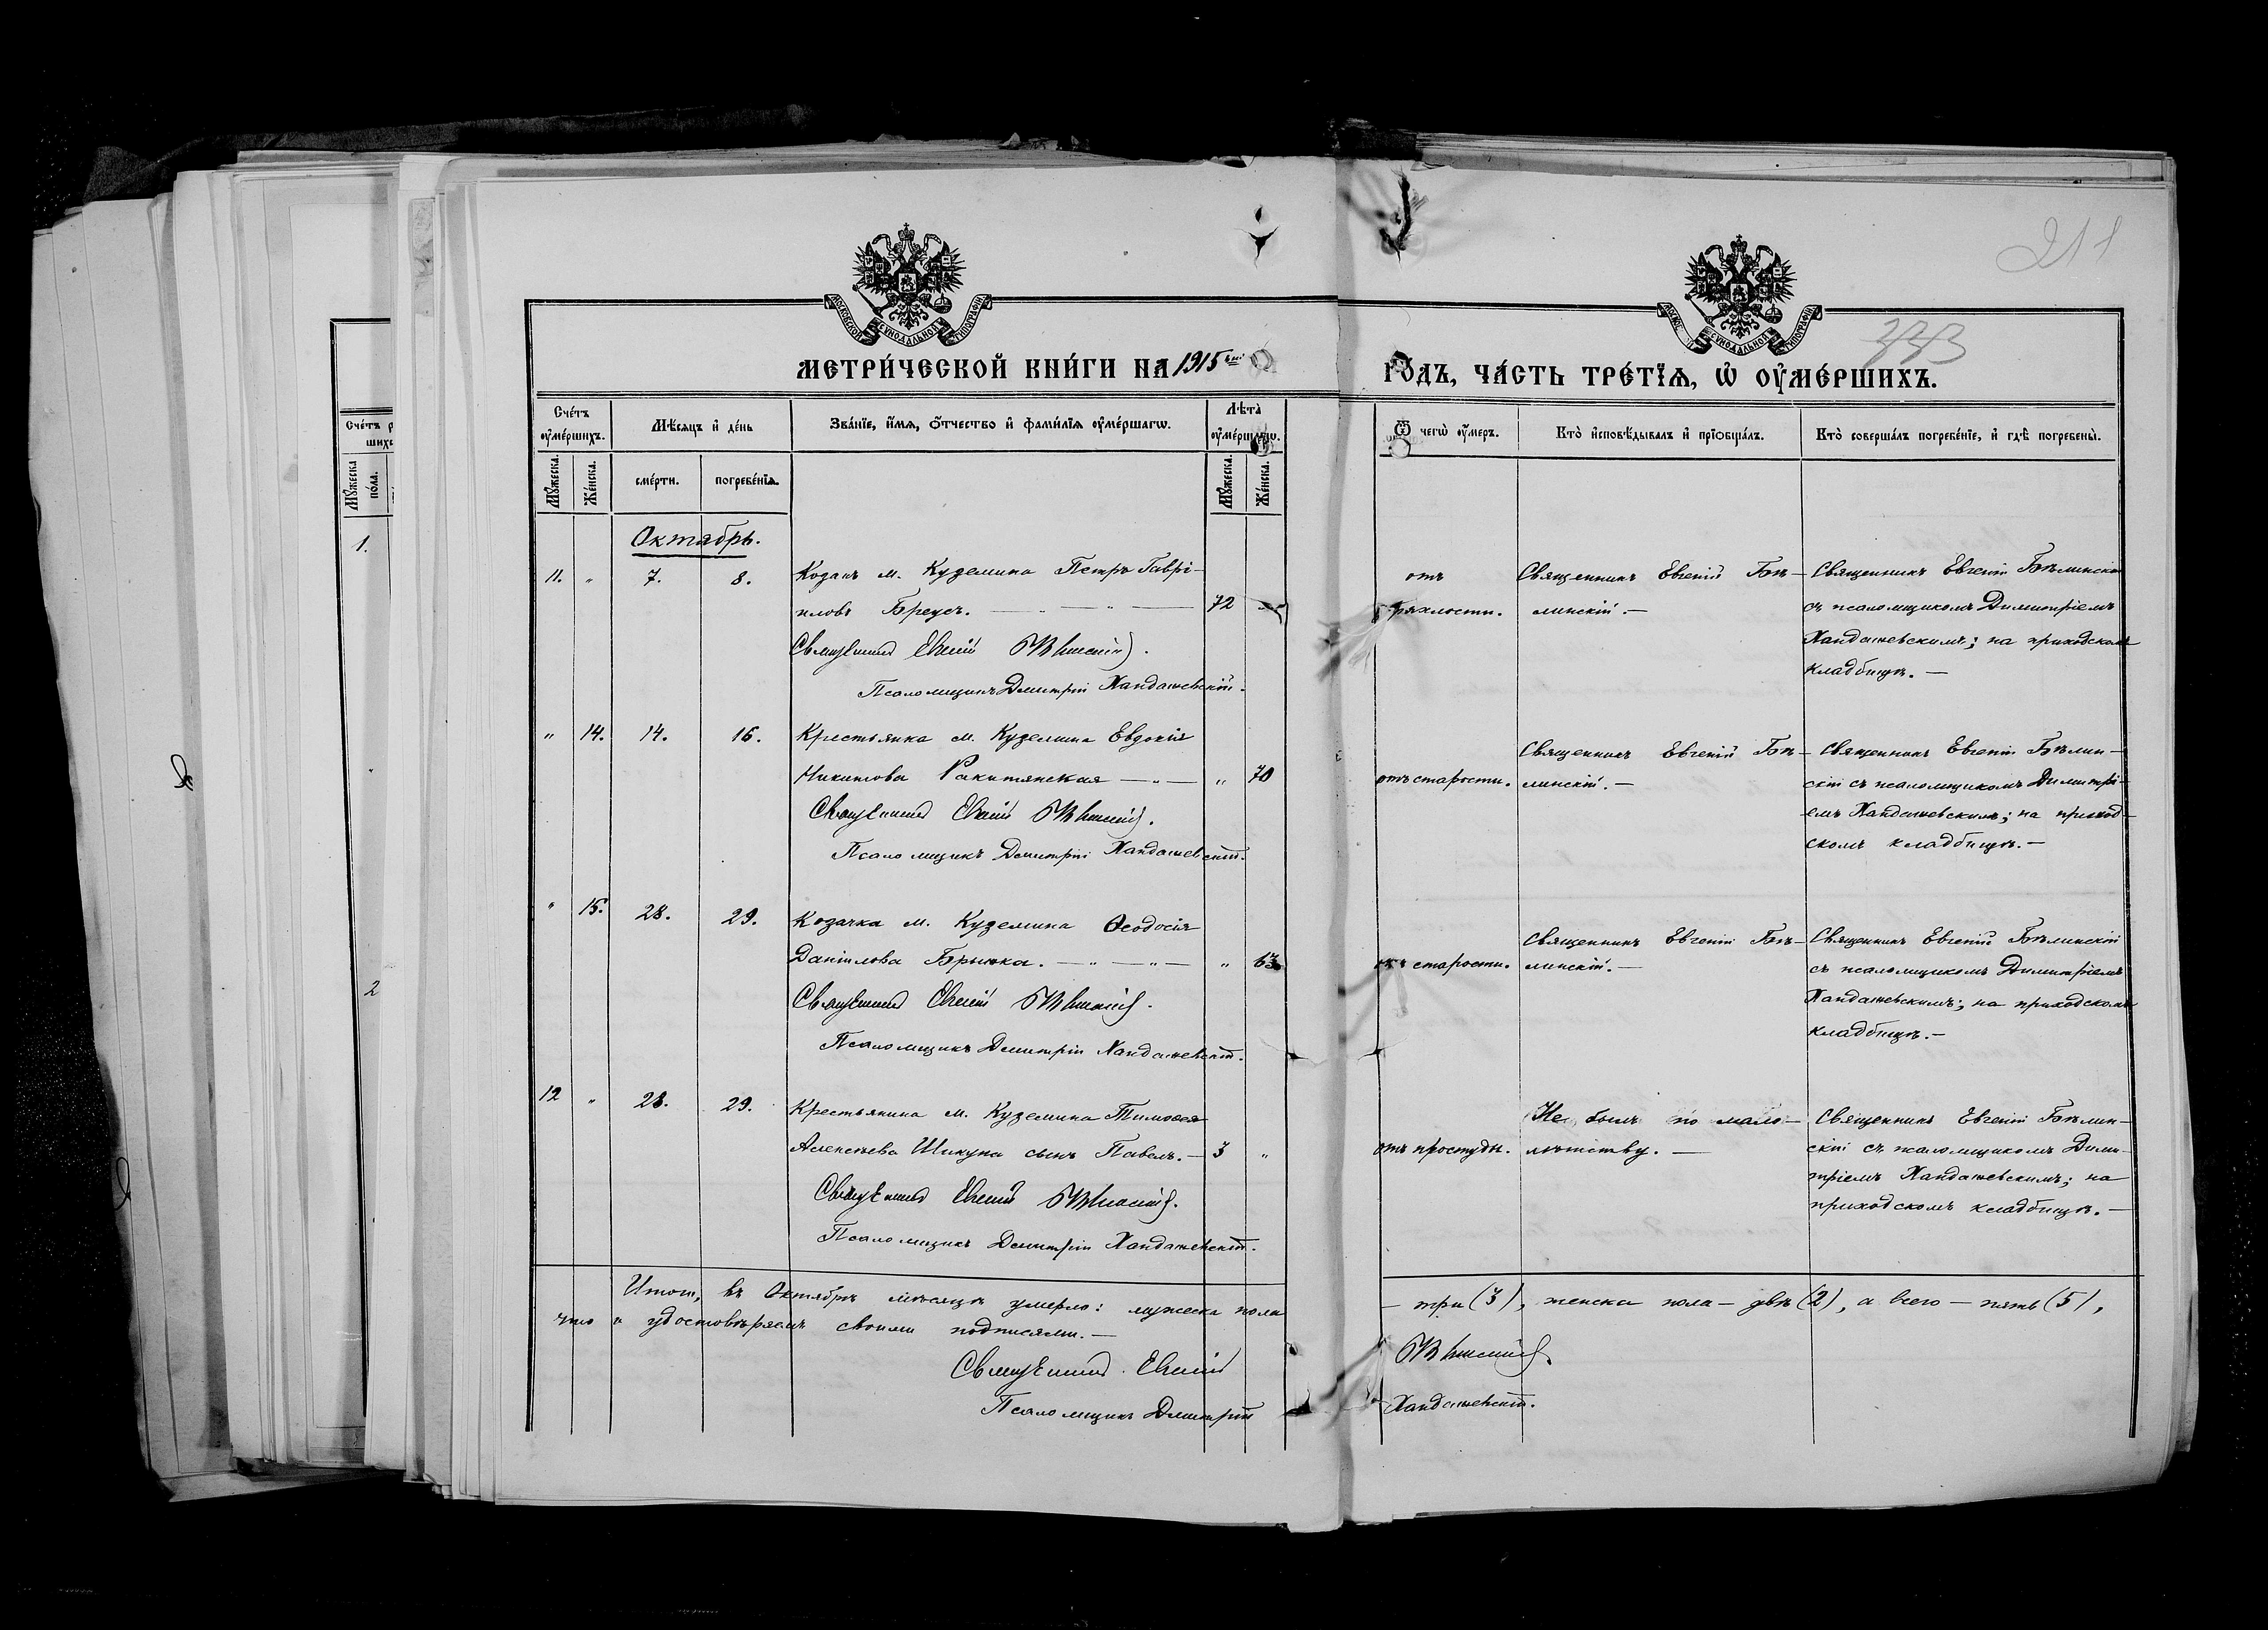 211
333
МОСКОВСКОЙ СѴНОДАЛЬНОЙ ТИПОГРАФІИ
МЕТРИ́ЧЕСКОЙ КНИ́ГИ НА 1915
ГО́ДЪ, ЧА́СТЬ ТРЕ́ТІѦ, Ѡ҆ ОУ҆МЕ́РШИХЪ.
Сче́тъ оу҆ме́ршихъ.
Мѣ́сяцъ и҆ де́нь
Зва́нїе, и҆́мѧ, ѻ҆́тчество и҆ фами́лїѧ оу҆ме́ршагѡ.
Лѣ́та оу҆ме́ршагѡ.
Ѿ чегѡ̀ оу҆́меръ.
Кто̀ и҆сповѣ́дывалъ и҆ прїѡбща́лъ.
Кто̀ соверша́лъ погребе́нїе, и҆ гдѣ̀ погребены̀.
Мꙋ́жеска.
Же́нска.
сме́рти.
погребе́нїѧ.
Мꙋ́жеска.
Же́нска.
Октябрь.
11. „ 7. 8. Козакъ м. Куземина Петръ Гаврі-
иловъ Бреусъ. 72 „
Священникъ Евгеній Бѣлинскій.
Псаломщикъ Димитрій Хандажевскій.
отъ
дряхлости.
Священникъ Евгеній Бѣ-
линскій.—
Священникъ Евгеній Бѣлинскій
съ псаломщикомъ Димитріемъ
Хандажевскимъ; на приходскомъ
кладбищѣ.—
„ 14. 14. 16. Крестьянка м. Куземина Евдокія
Никитова Ракитянская —„— „ 70
Священникъ Евгеній Бѣлинскій.
Псаломщикъ Димитрій Хандажевскій.
отъ старости.
Священникъ Евгеній Бѣ-
линскій.—
Священникъ Евгеній Бѣлин-
скій съ псаломщикомъ Димитрі-
емъ Хандажевскимъ; на приход-
скомъ кладбищѣ.—
„ 15. 28. 29. Козачка м. Куземина Ѳеодосія
Даніилова Брыжка. —„—„— „ 63
Священникъ Евгеній Бѣлинскій.
Псаломщикъ Димитрій Хандажевскій.
отъ старости.
Священникъ Евгеній Бѣ-
линскій.—
Священникъ Евгеній Бѣлинскій
съ псаломщикомъ Димитріемъ
Хандажевскимъ; на приходскомъ
кладбищѣ.—
12 „ 28. 29. Крестьянина м. Куземина Тимоѳея
Алексѣева Шикуна сынъ Павелъ.— 3 „
Священникъ Евгеній Бѣлинскій.
Псаломщикъ Димитрій Хандажевскій.
отъ простуды.
Не былъ по мало-
лѣтству.—
Священникъ Евгеній Бѣлин-
скій съ псаломщикомъ Дими-
тріемъ Хандажевскимъ; на
приходскомъ кладбищѣ.—
Итого, въ Октябрѣ мѣсяцѣ умерло: мужеска пола
— три (3), женска пола — двѣ (2), а всего — пять (5),
что и удостовѣряемъ своими подписями.—
Священникъ Евгеній
Бѣлинскій.
Псаломщикъ Димитрій
Хандажевскій.
Сче́тъ
Мꙋ́жеска по́ла.
1.
2